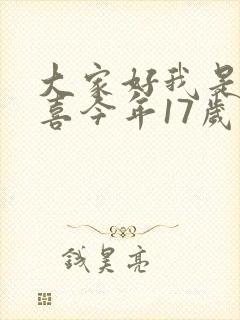 大家好我是
喜今年17歲
钱昊亮